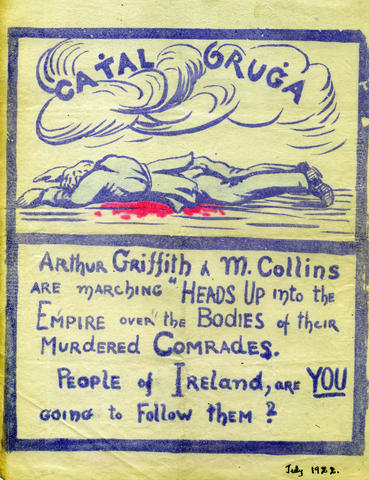 CAṪAL BRUĠA
ARTHUR GRIFFITH & M. COLLINS
ARE MARCHING "HEADS UP into the
EMPIRE OVER" the BODIES of their
MURDERED COMRADES.
PEOPLE of IRELAND, ARE YOU
GOING to FOLLOW THEM?
July 1922.